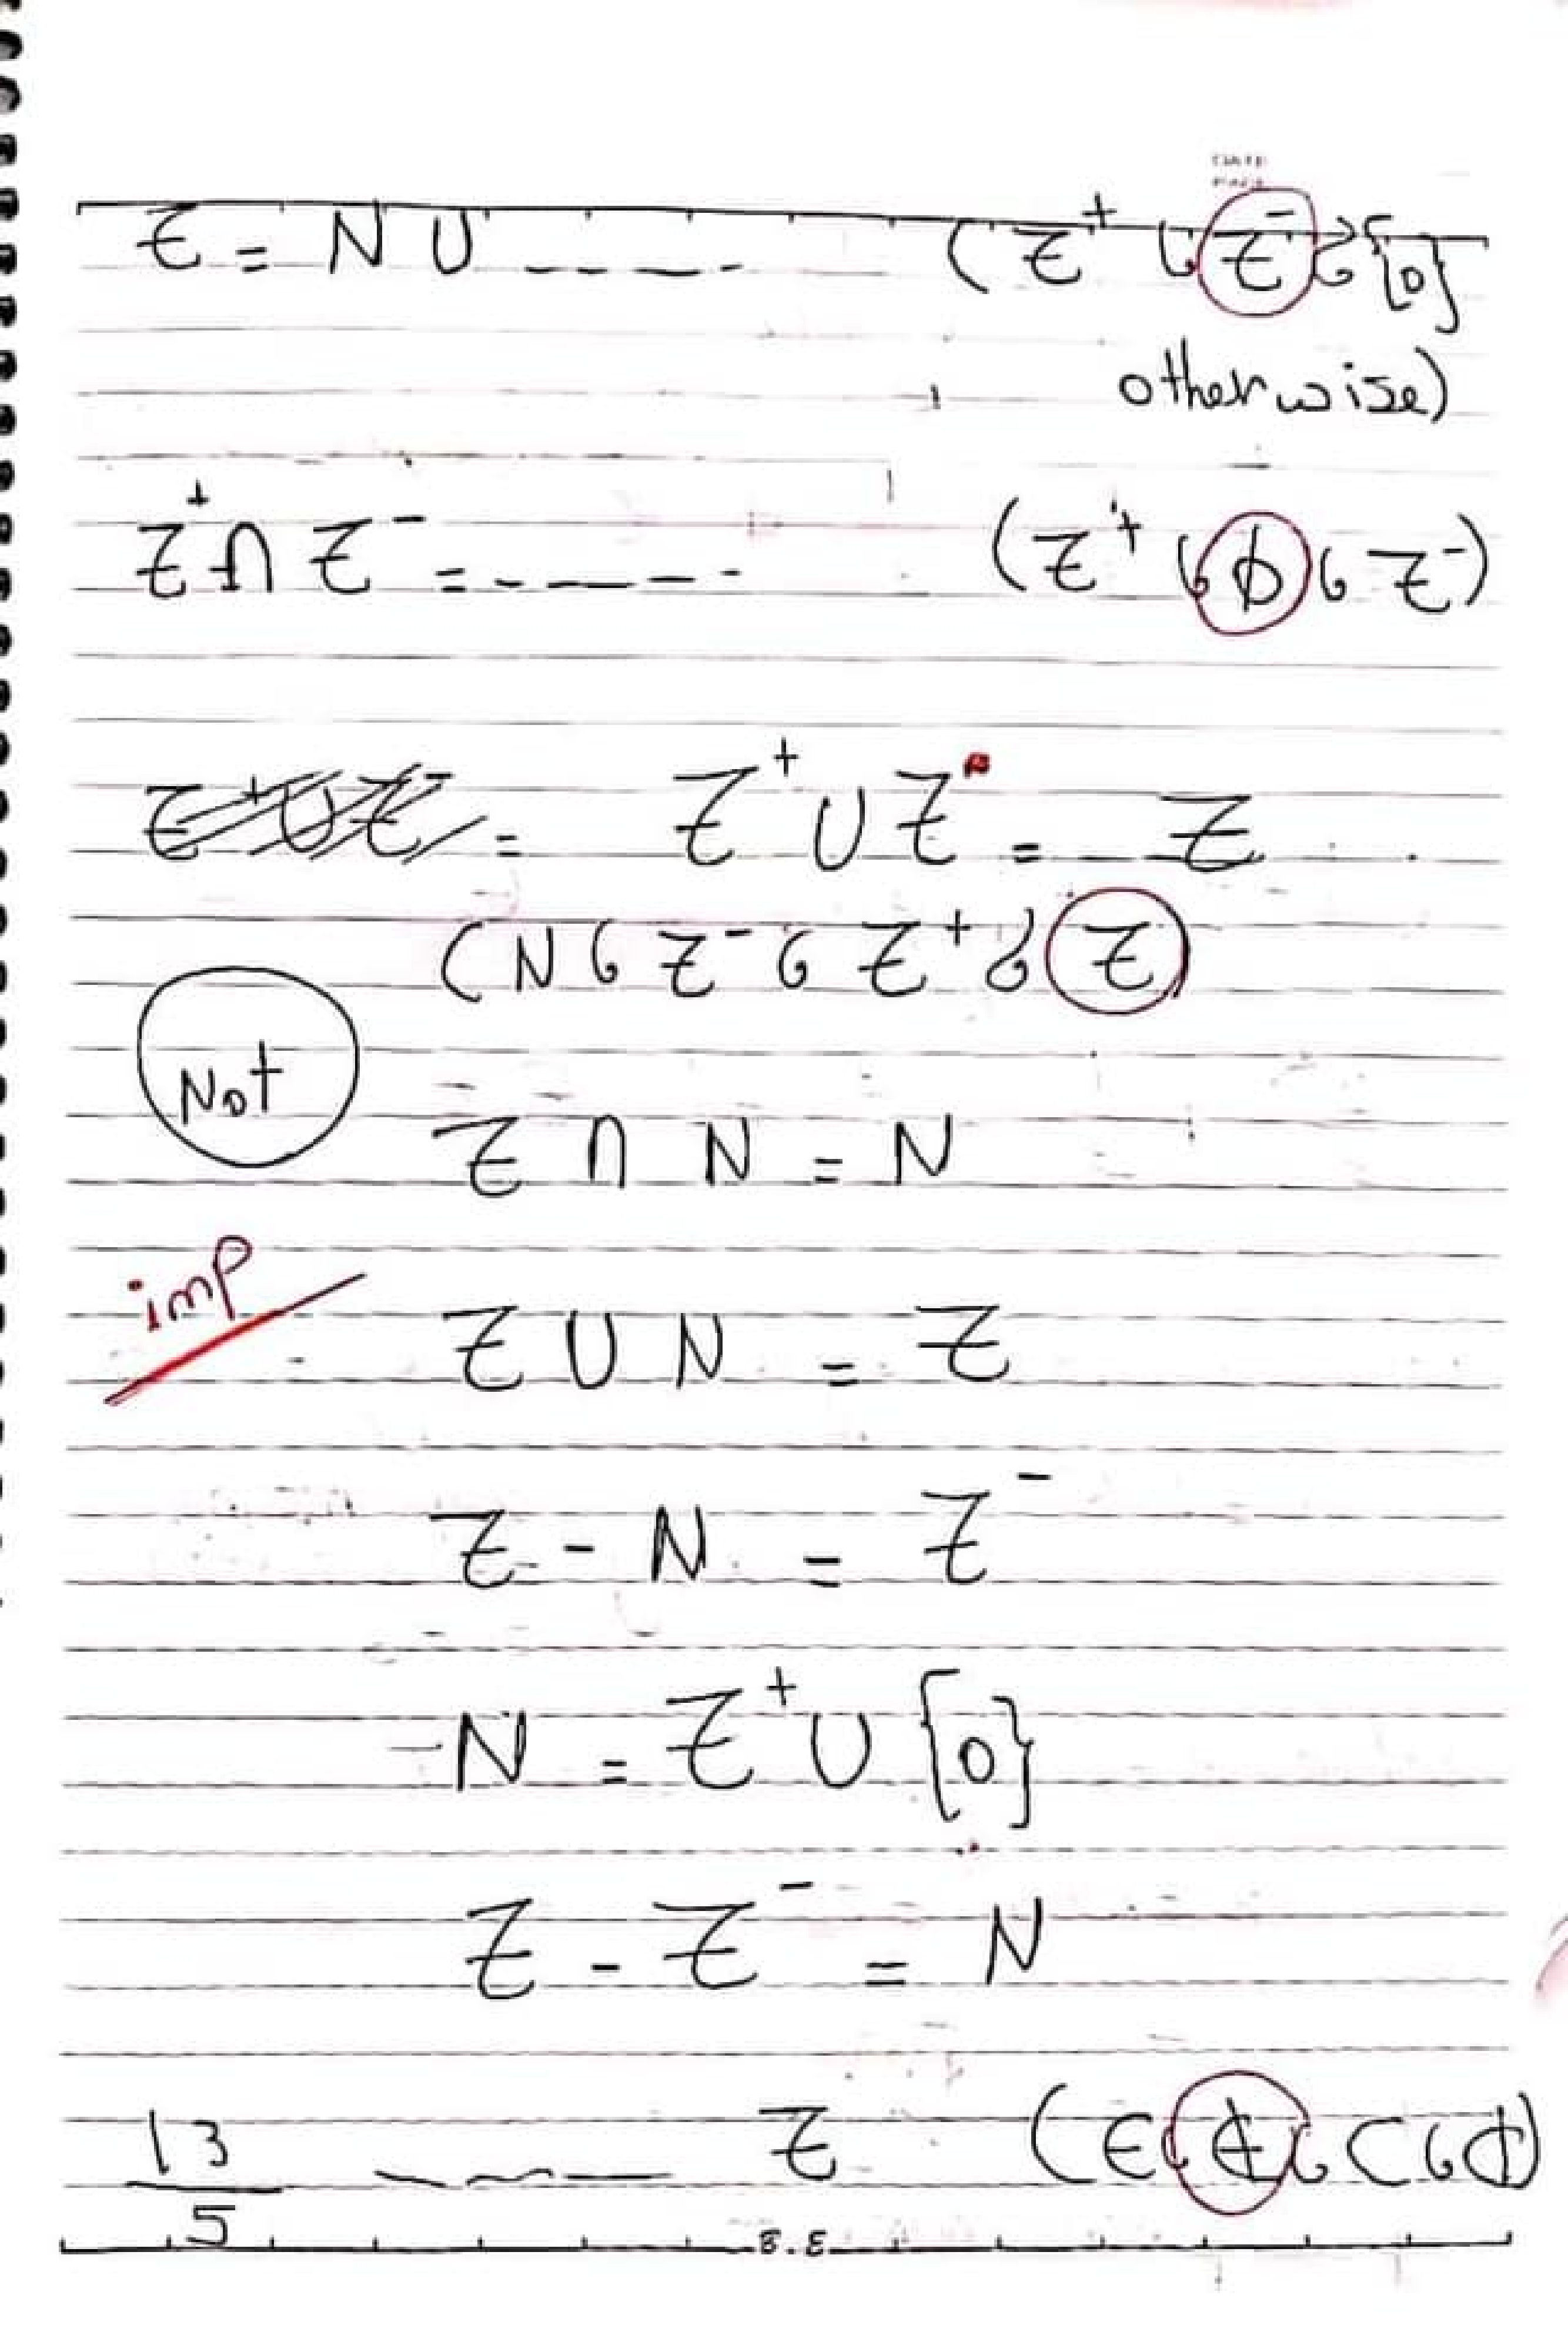 DATE
PAGE
Z = N ∪ ------ (Z⁺ ، Z⁻ ، {0}
otherwise)
Z⁺ ∩ Z⁻ = ------ (Z⁺ ، ϕ ، Z⁻)
Z⁺ ∪ Z⁻ = Z⁺ ∪ Z = Z
(N ، Z⁻ ، Z⁺ ، Z)
Not
Z ∩ N = N
imp
Z ∪ N = Z
Z - N = Z⁻
N = Z⁺ ∪ {0}
Z - Z⁻ = N
13/5 ------ Z (∈ ، ∉ ، ⊂ ، ⊄)